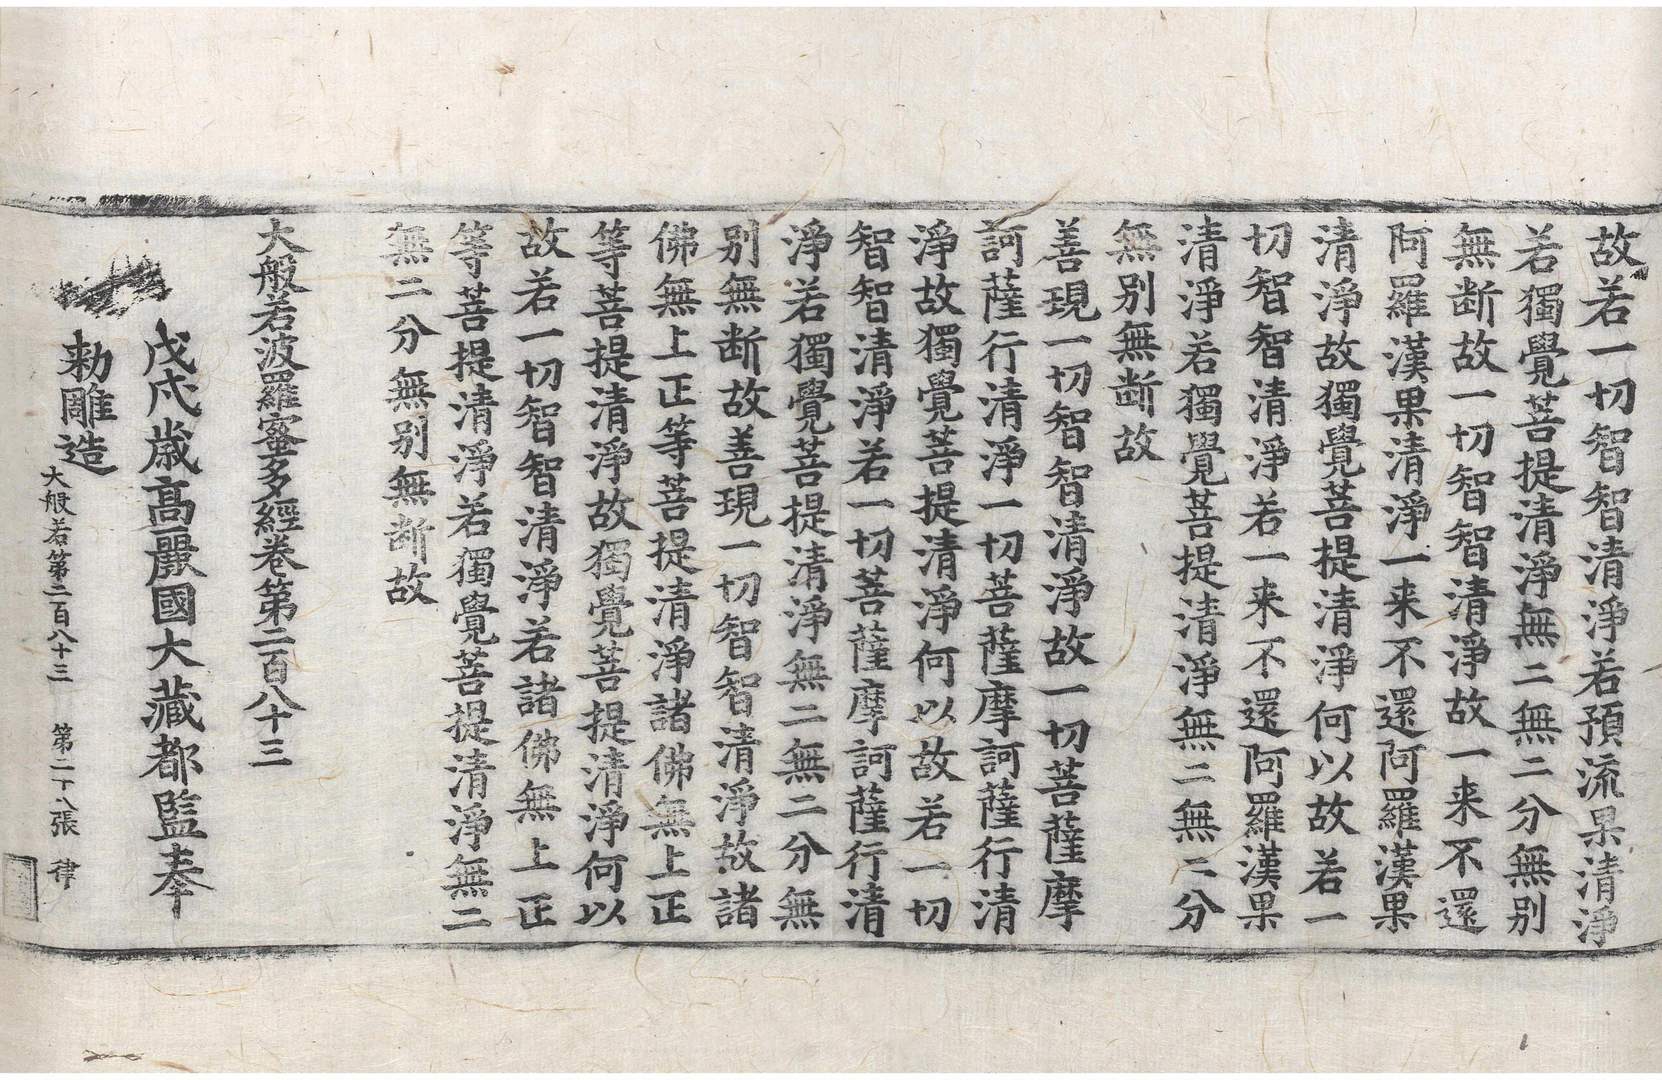 故若一切智智清淨若預流果清淨
若獨覺菩提清淨無二無二分無别
無断故一切智智清淨故一来不還
阿羅漢果清淨一来不還阿羅漢果
清淨故獨覺菩提清淨何以故若一
切智智清淨若一来不還阿羅漢果
清淨若獨覺菩提清淨無二無二分
無别無断故
善現一切智智清淨故一切菩薩摩
訶薩行清淨一切菩薩摩訶薩行清
淨故獨覺菩提清淨何以故若一切
智智清淨若一切菩薩摩訶薩行清
淨若獨覺菩提清淨無二無二分無
别無断故善現一切智智清淨故諸
佛無上正等菩提清淨諸佛無上正
等菩提清淨故獨覺菩提清淨何以
故若一切智智清淨若諸佛無上正
等菩提清淨若獨覺菩提清淨無二
無二分無别無断故
大般若波羅蜜多經卷第二百八十三
戊戌歳高麗國大藏都監奉
勑雕造
大般若第二百八十三 第二十八張 律